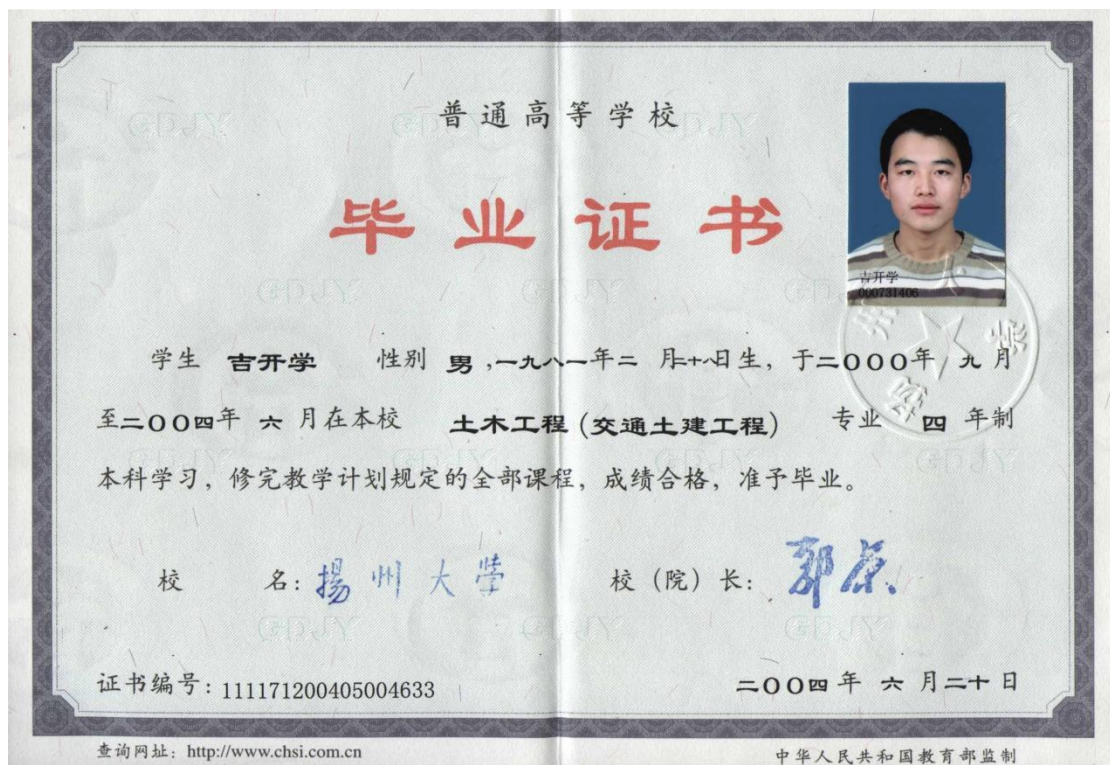 普通高等学校
毕业证书
吉开学
000731406
学生 吉开学 性别 男,一九八一年二 月二十八日生,于二〇〇〇年 九 月
至二〇〇四年 六 月在本校 土木工程(交通土建工程) 专业 四 年制
本科学习,修完教学计划规定的全部课程,成绩合格,准予毕业。
校 名:揚州大學 校(院)长:郭荣
证书编号:111171200405004633 二〇〇四年 六 月二十日
查询网址:http://www.chsi.com.cn 中华人民共和国教育部监制